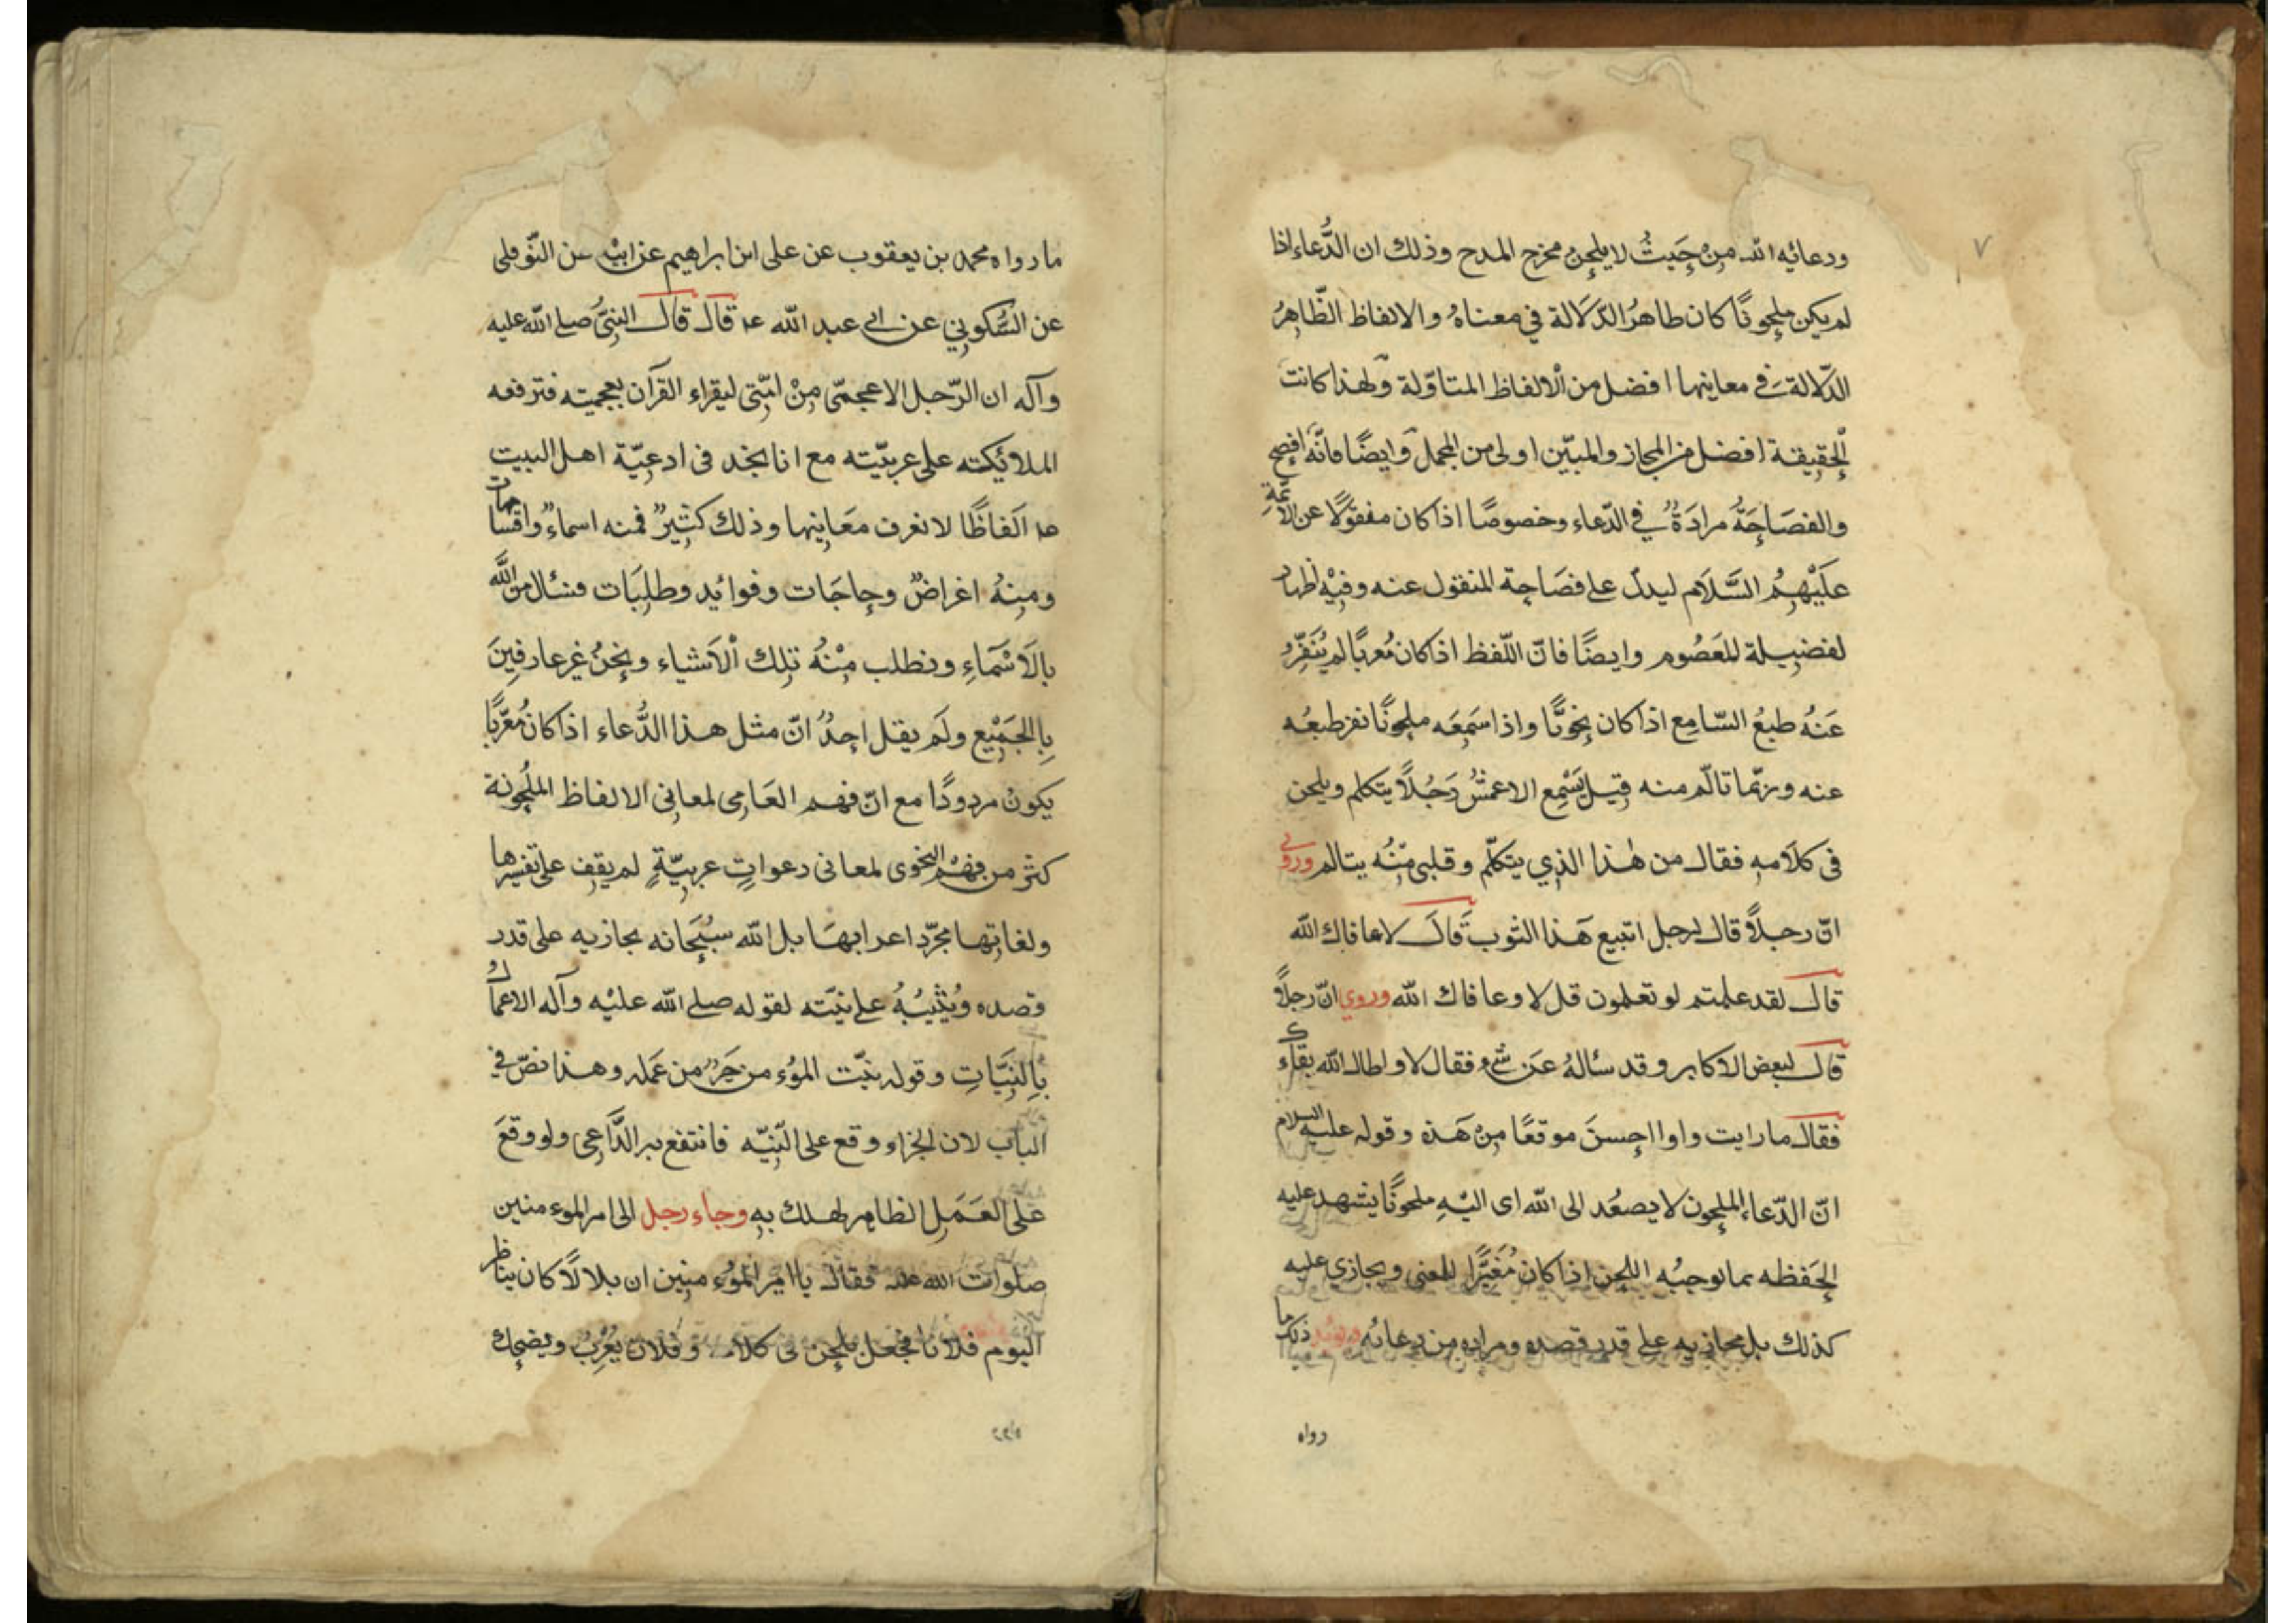 ٧
ودعائه الله مِنْ حَيثُ لا يلحن مخرج المدح وذلك ان الدُّعاء اذا
لم يكن ملحونًا كان ظاهرُ الدّلالة في معناهُ والالفاظ الظّاهرُ
الدّلالة في معاينها افضل من الالفاظ المتاوّلة ولهذا كانت
الحقيقة افضل من المجاز والمبيّن اولى من المجمل وايضًا فانّه افصح
والفصَاحَةُ مرادَةٌ في الدّعاء وخصوصًا اذا كان منقولًا عن الائمّة
عليْهِمُ السَّلَام ليدلّ على فصَاحة المنقول عنه وفيْه اظهار
لفضيلة للمَعصُوم وايضًا فانّ اللّفظ اذا كان مُعربًا لم يُنَفِّرْ
عَنْهُ طبعُ السّامِع اذا كان نحويًّا واذا سَمِعَه ملحونًا نفر طبعُه
عنه وربّما تألّم منه قيل يَسْمِع الاعمشُ رَجُلًا يتكلم ويلحن
فى كلَامهِ فقال من هٰذا الذِي يتكلّم وقلبى مِنْه يتالم وروى
انّ رجلًا قال لرجل اتبيع هَذا الثوب قَالَ لا عافاك الله
قال لقد علمتم لو تعلمون قل لا وعافاك الله وروي انّ رجلًا
قال لبعض الاكابر وقد سئالهُ عَن شئ فقال لا واطال الله بقاءك
فقال ما رايت واوا احسنَ موقعًا مِنْ هَذه وقوله عليه السلام
انّ الدّعاء الملحون لا يصعُد الى الله اى اليْهِ ملحونًا يشهد عليه
الحَفظه بما يوجبُه اللحن اذا كان مُغيَّرًا للمعنى ويجازي عليه
كذلك بل يجازيه على قدر قصده ومراده من دعائه ويؤيد ذلك ما
رواه
ما رواه محمد بن يعقوب عن على ابن ابراهيم عن ابيْه عن النّوفلى
عن السُّكونِي عن ابى عبد الله عہ قال قال النبىّ صلے الله عليه
وآله ان الرّجل الاعجمّى مِنْ امّتى ليقراء القرآن بعجميته فترفعه
الملائيكته على عربيّته مع انا نجد فى ادعِيّة اهل البيت
عہ الَفاظًا لا نعرف معَاينها وذلك كثيرٌ فمنه اسماءٌ واقسامات
ومِنهُ اغراضٌ وحاجَات وفوائِد وطلِبَات فنسئال من الله
بالَاسْمَاءِ ونطلب مِنْهُ تلِك الْاَشياء ونحنُ غير عارفِينَ
بِالجَميْع ولَم يقل احدٌ انّ مثل هذا الدُّعاء اذا كان مُعرّبًا
يكونُ مردودًا مع انّ فهم العَامِى لمعانِى الالفاظ الملْحُونة
كثر من فهْم النحوى لمعانى دعواتٍ عربيّةٍ لم يقف على تفسيرها
ولغاتِها مجرّد اعرابهَا بل الله سبُحَانه يجازيه على قدر
قصده ويُثيْبُهُ على نيّته لقوله صلے الله عليْه وآله الاعمال
بِالنِيَّاتِ وقوله نيّت الموُء من خَيرٌ من عَمله وهذا نصّ في
الباب لان الجزاء وقع على النّيّه فانتفع به الدَّاعِى ولو وقعَ
على العَمَلِ الظاهِر لهلك بهِ وجاء رجل الى امير الموء منين
صلوات الله عليه فقال يا امير الموُء منِين ان بلالًا كان يناظر
اليوم فلانا فجعل يلحن فى كلامه وفلان يُعْرِبُ ويضحك